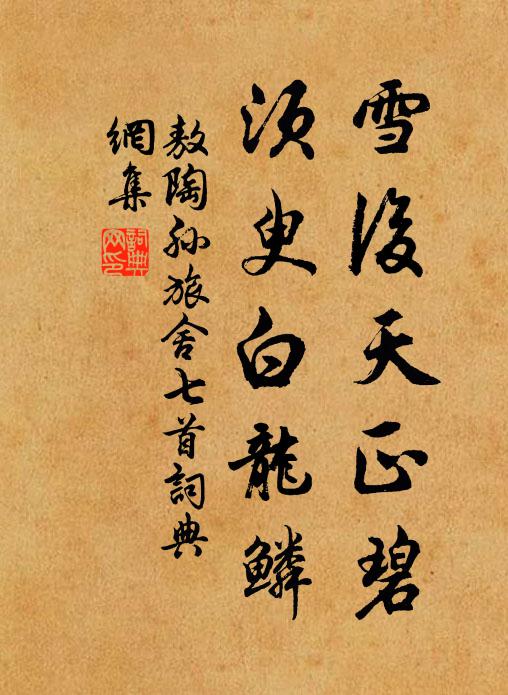 雪後天正碧
須臾白龍鱗
敖陶孫旅舍七首詞典
網集
詞典網印